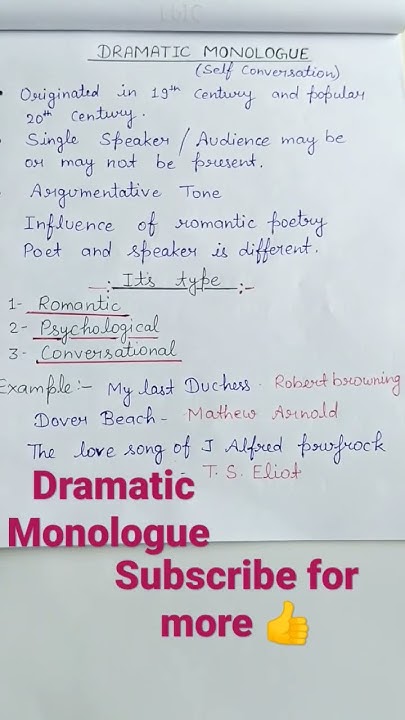 DRAMATIC MONOLOGUE
(Self Conversation)
• Originated in 19th Century and popular
20th Century.
• Single Speaker / Audience may be
or may not be present.
• Argumentative Tone
Influence of romantic poetry
Poet and speaker is different.
It's type
1- Romantic
2- Psychological
3- Conversational
Example:- My last Duchess. Robert browning
Dover Beach - Mathew Arnold
The love song of J Alfred prufrock
- T. S. Eliot
Dramatic
Monologue
Subscribe for
more 👍